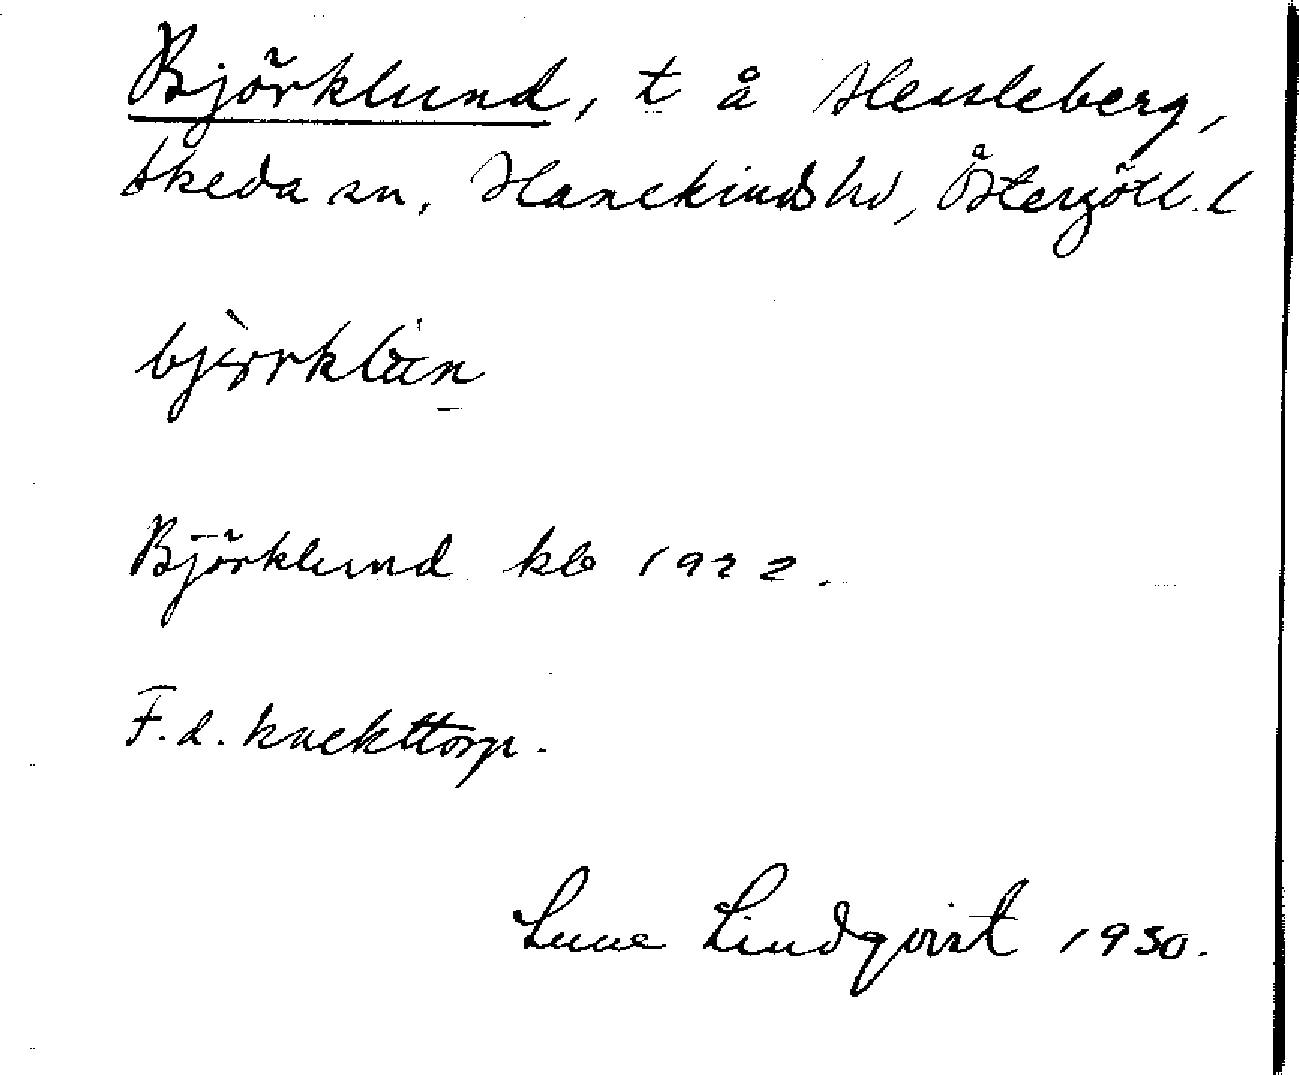 Björklund, t å Hessleberg,
Skeda sn, Hanekinds hd, Östergötl. l
Björklund kb 1922.
F.d. knekttorp.
Sune Lindqvist 1930.